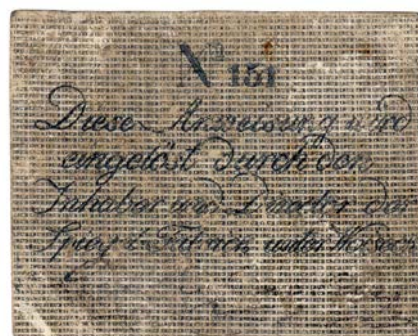 No 151
Diese Anweisung wird
eingelöst durch den
Inhaber und Director der
Spiegel-Fabrick unter